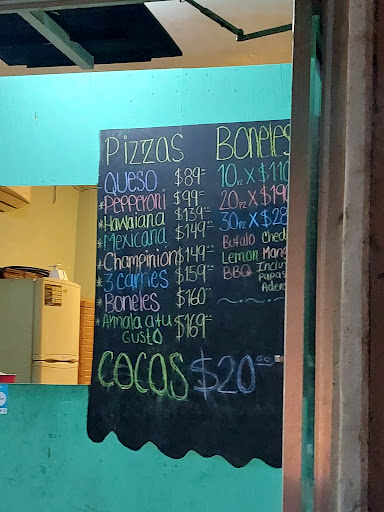 Pizzas
QUESO $89
*Pepperoni $99
*Hawaiana $139
*Mexicana $149
*Champinion $149
*3 carnes $159
*Boneles $160
*Armala a tu $169
GUSTO
COCAS $20
Boneles
10Pz X $110
20Pz X $190
30Pz X $28
Bufalo Ched
Lemon Mang
BBQ Inclu
Papas
Ader